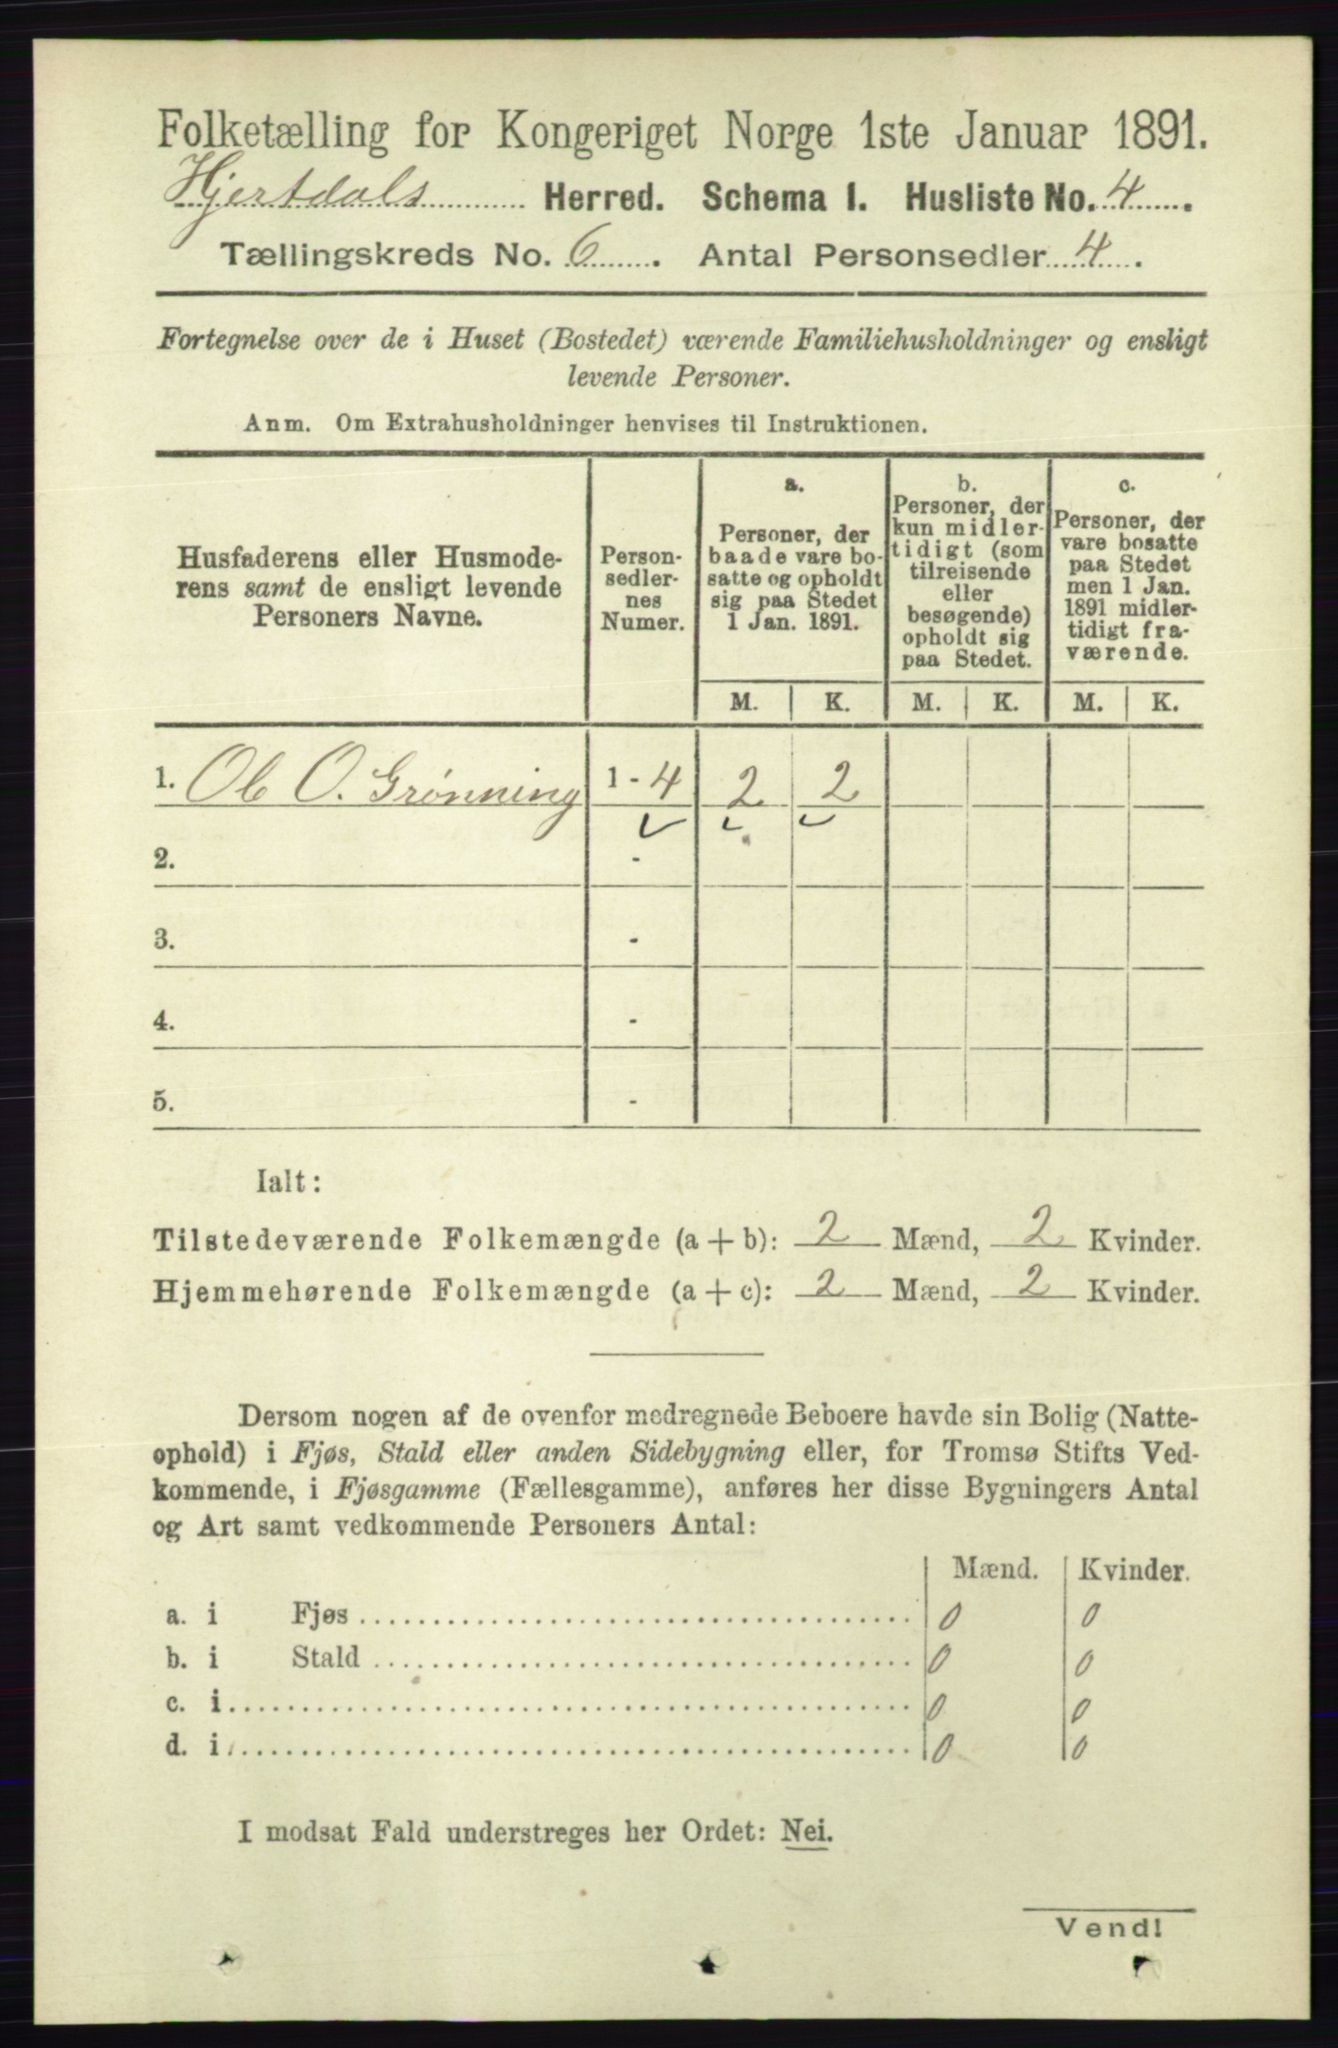 Folketælling for Kongeriget Norge 1ste Januar 1891.
Hjertdals Herred. Schema I. Husliste No. 4.
Tællingskreds No. 6. Antal Personsedler 4.
Fortegnelse over de i Huset (Bostedet) værende Familiehusholdninger og ensligt
levende Personer.
Anm. Om Extrahusholdninger henvises til Instruktionen.
Husfaderens eller Husmode-
rens samt de ensligt levende
Personers Navne.
Person-
sedler-
nes
Numer.
a.
Personer, der
baade vare bo-
satte og opholdt
sig paa Stedet
1 Jan. 1891.
b.
Personer, der
kun midler-
tidigt (som
tilreisende
eller
besøgende)
opholdt sig
paa Stedet.
c.
Personer, der
vare bosatte
paa Stedet
men 1 Jan.
1891 midler-
tidigt fra-
værende.
M. K. M. K. M. K.
1. Ol O. Grønning 1 - 4 2 2
2. -
3. -
4. -
5. -
Ialt:
Tilstedeværende Folkemængde (a + b): 2 Mænd, 2 Kvinder.
Hjemmehørende Folkemængde (a + c): 2 Mænd, 2 Kvinder.
Dersom nogen af de ovenfor medregnede Beboere havde sin Bolig (Natte-
ophold) i Fjøs, Stald eller anden Sidebygning eller, for Tromsø Stifts Ved-
kommende, i Fjøsgamme (Fællesgamme), anføres her disse Bygningers Antal
og Art samt vedkommende Personers Antal:
Mænd. Kvinder.
a. i Fjøs 0 0
b. i Stald 0 0
c. i 0 0
d. i 0 0
I modsat Fald understreges her Ordet: Nei.
Vend!